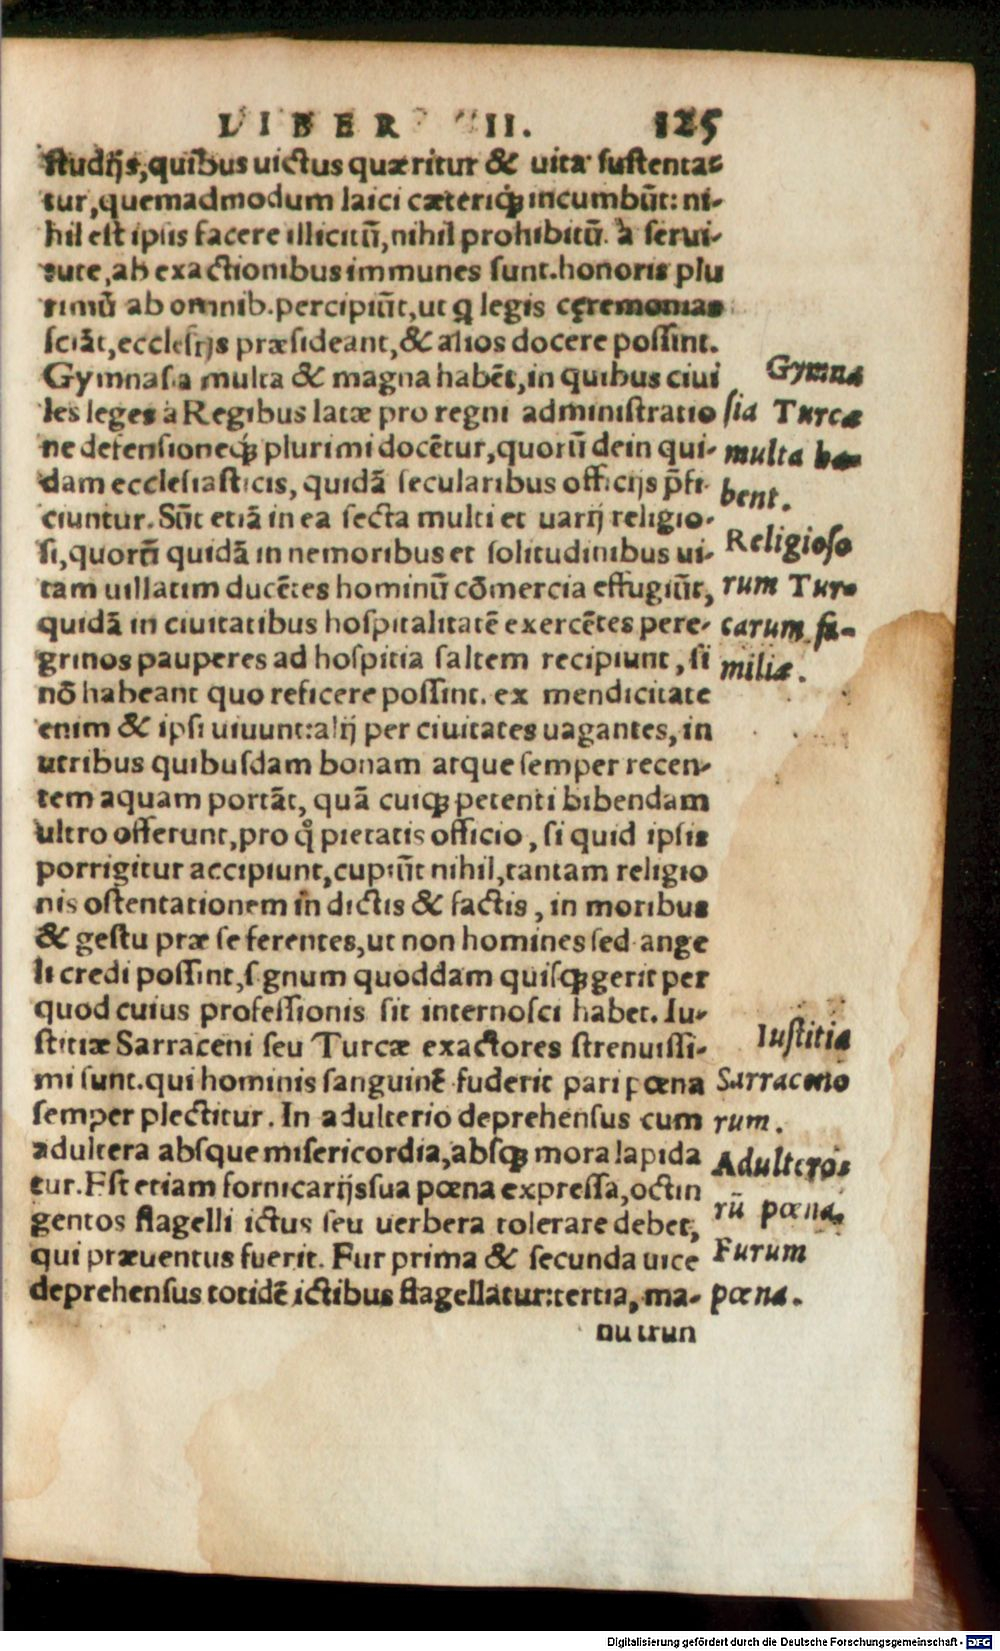 LIBER II. 125
ſtudijs, quibus uictus quæritur & uita ſuſtenta-
tur, quemadmodum laici cæteriq́ꝫ incumbũt: ni-
hil eſt ipſis facere illicitũ, nihil prohibitũ. à ſerui-
tute, ab exactionibus immunes ſunt. honoris plu
rimũ ab omnib. percipiũt, ut q legis cęremonias
ſciãt, eccleſijs præſideant, & alios docere poſſint.
Gymnaſia multa & magna habẽt, in quibus ciui
les leges à Regibus latæ pro regni adminiſtratio
ne defenſioneq́ꝫ plurimi docẽtur, quorũ dein qui-
dam eccleſiaſticis, quidã ſecularibus officijs p̃fi
ciuntur. Sũt etiã in ea ſecta multi et uarij religio-
ſi, quorũ quidã in nemoribus et ſolitudinibus ui-
tam uillatim ducẽtes hominũ cõmercia effugiũt,
quidã in ciuitatibus hoſpitalitatẽ exercẽtes pere-
grinos pauperes ad hoſpitia ſaltem recipiunt, ſi
nõ habeant quo reficere poſſint. ex mendicitate
enim & ipſi uiuunt: alij per ciuitates uagantes, in
utribus quibuſdam bonam atque ſemper recen-
tem aquam portãt, quã cuiqꝫ petenti bibendam
ultro offerunt, pro q̊ pietatis officio, ſi quid ipſis
porrigitur accipiunt, cupiũt nihil, tantam religio
nis oſtentationem in dictis & factis, in moribus
& geſtu præ ſe ferentes, ut non homines ſed ange
li credi poſſint, ſignum quoddam quiſqꝫ gerit per
quod cuius profeſſionis ſit internoſci habet. Iu-
ſtitiæ Sarraceni ſeu Turcæ exactores ſtrenuiſſi-
mi ſunt. qui hominis ſanguinẽ fuderit pari pœna
ſemper plectitur. In adulterio deprehenſus cum
adultera absque miſericordia, absqꝫ mora lapida
tur. Eſt etiam fornicarijs ſua pœna expreſſa, octin
gentos flagelli ictus ſeu uerbera tolerare debet,
qui præuentus fuerit. Fur prima & ſecunda uice
deprehenſus totidẽ ictibus flagellatur: tertia, ma-
nu trun
Gymna
ſia Turcæ
multa ha-
bent.
Religioſo
rum Tur-
carum fa-
miliæ.
Iuſtitia
Sarraceno
rum.
Adultero
rũ pœna.
Furum
pœna.
Digitalisierung gefördert durch die Deutsche Forschungsgemeinschaft - DFG